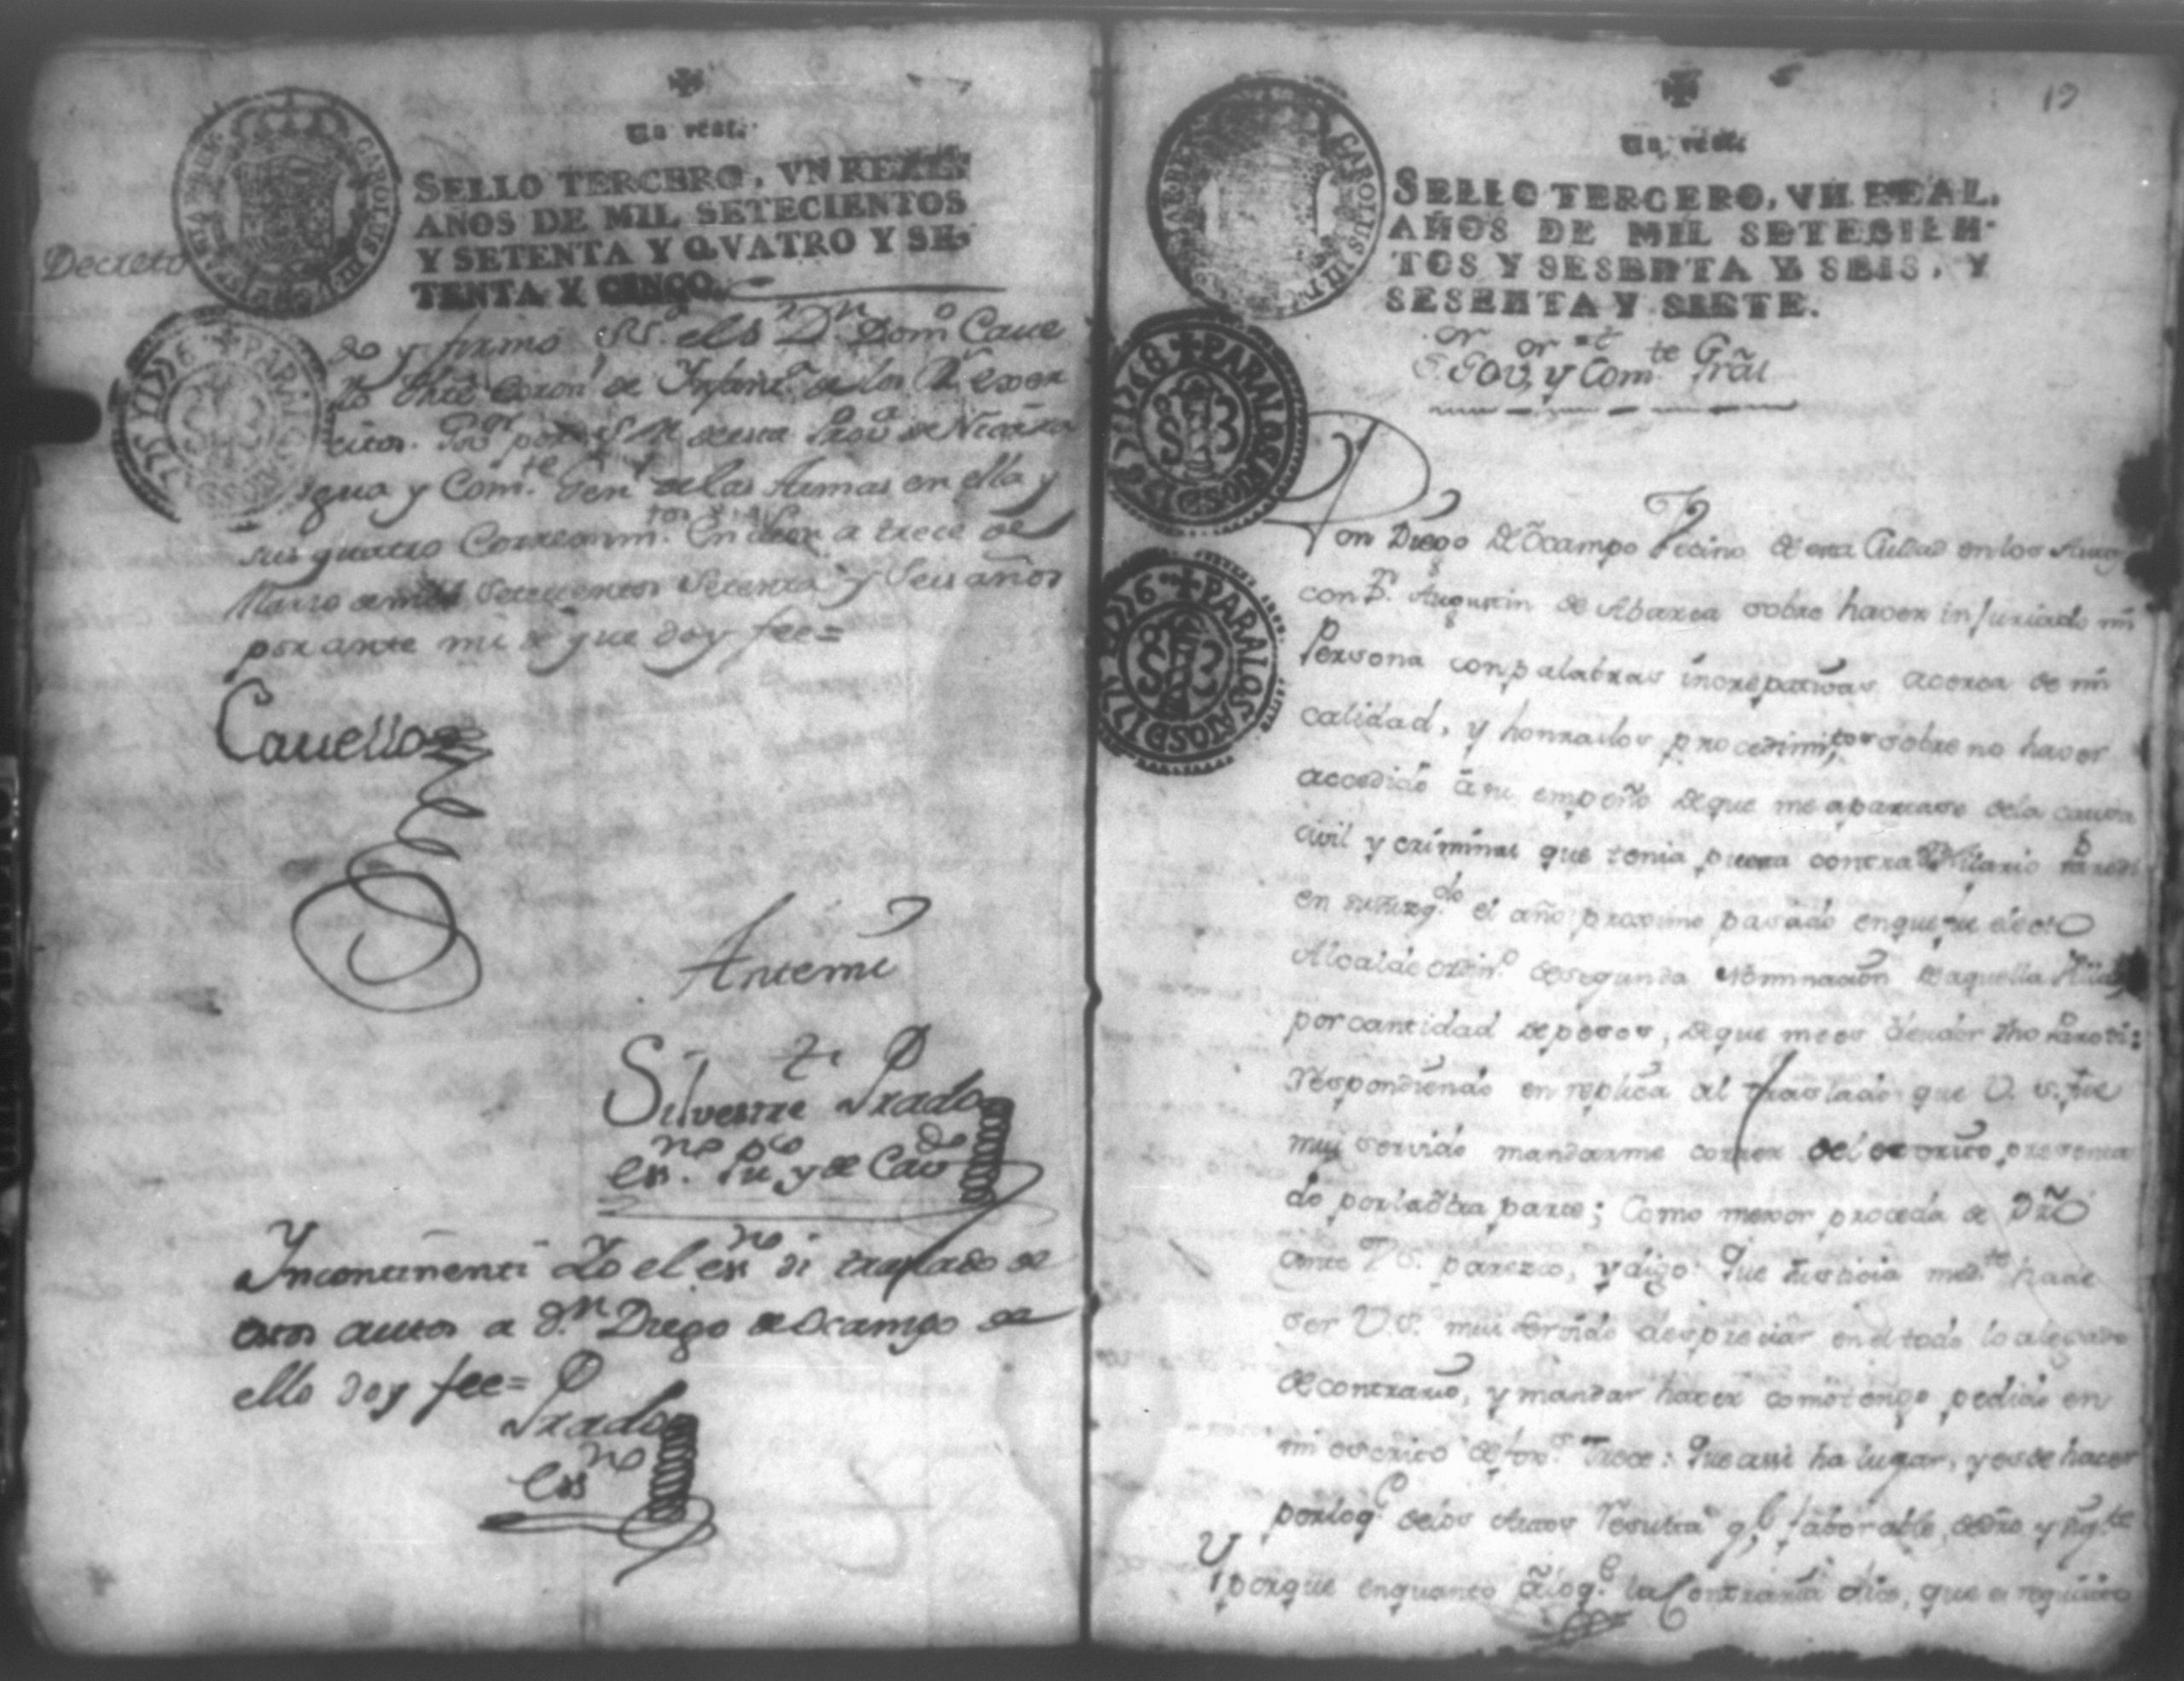 Un real.
SELLO TERCERO, VN REAL,
AÑOS DE MIL SETECIENTOS
Y SETENTA Y QVATRO Y SE-
TENTA Y CINCO.
CAROLUS III
Decreto
do y firmo el S.r D.n Dom.o Cave
llo Then.te coron.l de Infant.a de los R.s exer
citos. Gov.or por S M de esta Prov.a de Nicara
gua y Com.te Gen.l de las Armas en ella y
sus quatro Correxim.tos En Leon a trece de
Marzo de mil Setecientos Setenta y Seis años
por ante mi de que doy fee=
Cavello
Ante mi
Silvestre Prado
ess.no pu.co y de Cav.do
Yncontinenti Yo el ess.no di traslado de
estos autos a d.n Diego de Ocampo de
ello doy fee=
Prado
ess.no
12
Un real.
SELLO TERCERO, VN REAL,
AÑOS DE MIL SETECIEN-
TOS Y SESENTA Y SEIS, Y
SESENTA Y SIETE.
CAROLUS III
PARA LOS AÑOS D 1767 Y 1768
PARA LOS AÑOS D 1775 Y 1776
S.or Gov.or y Com.te Grãl
Don Diego de Ocampo Vecino de esta Ciudad en los Autos
con D.n Augustin de Abarca sobre haver injuriado mi
Persona con palabras increpativas acerca de mi
calidad, y honrados procedimi.tos sobre no haver
accedido â su empeño de que me apartase de la causa
civil y criminal que tenia puesta contra Hilario
en su Juzg.do el año proximo pasado en que fue electo
Alcalde ordin.o de segunda Nominacion de aquella Villa
por cantidad de pesos, de que me es deudor dho
respondiendo en replica al traslado que V. S. fue
mui servido mandarme correr del escrito presenta
do por la otra parte; Como mexor proceda de Dr̃o
ante V.S. parezco, y digo: Que Justicia med.te hade
ser V.S. mui servido despreciar en el todo lo alegado
de contrario, y mandar hacer como tengo pedido en
mi escrito de fox.s Trece: Que assi ha lugar, y es de hacer
por lo q.e de los Autos resulta favorable, dr̃o y sig.te
Y porque en quanto â lo q.e la Contraria dice, que